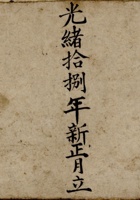 光緒拾捌年新正月立